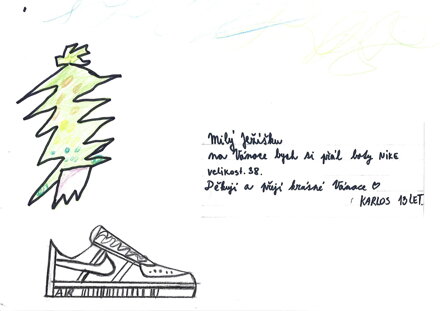 Milý Ježíšku
na Vánoce bych si přál boty NIKE
velikost. 38.
Děkuji a přeji krásné Vánoce ♡
KARLOS 13 LET.
AIR